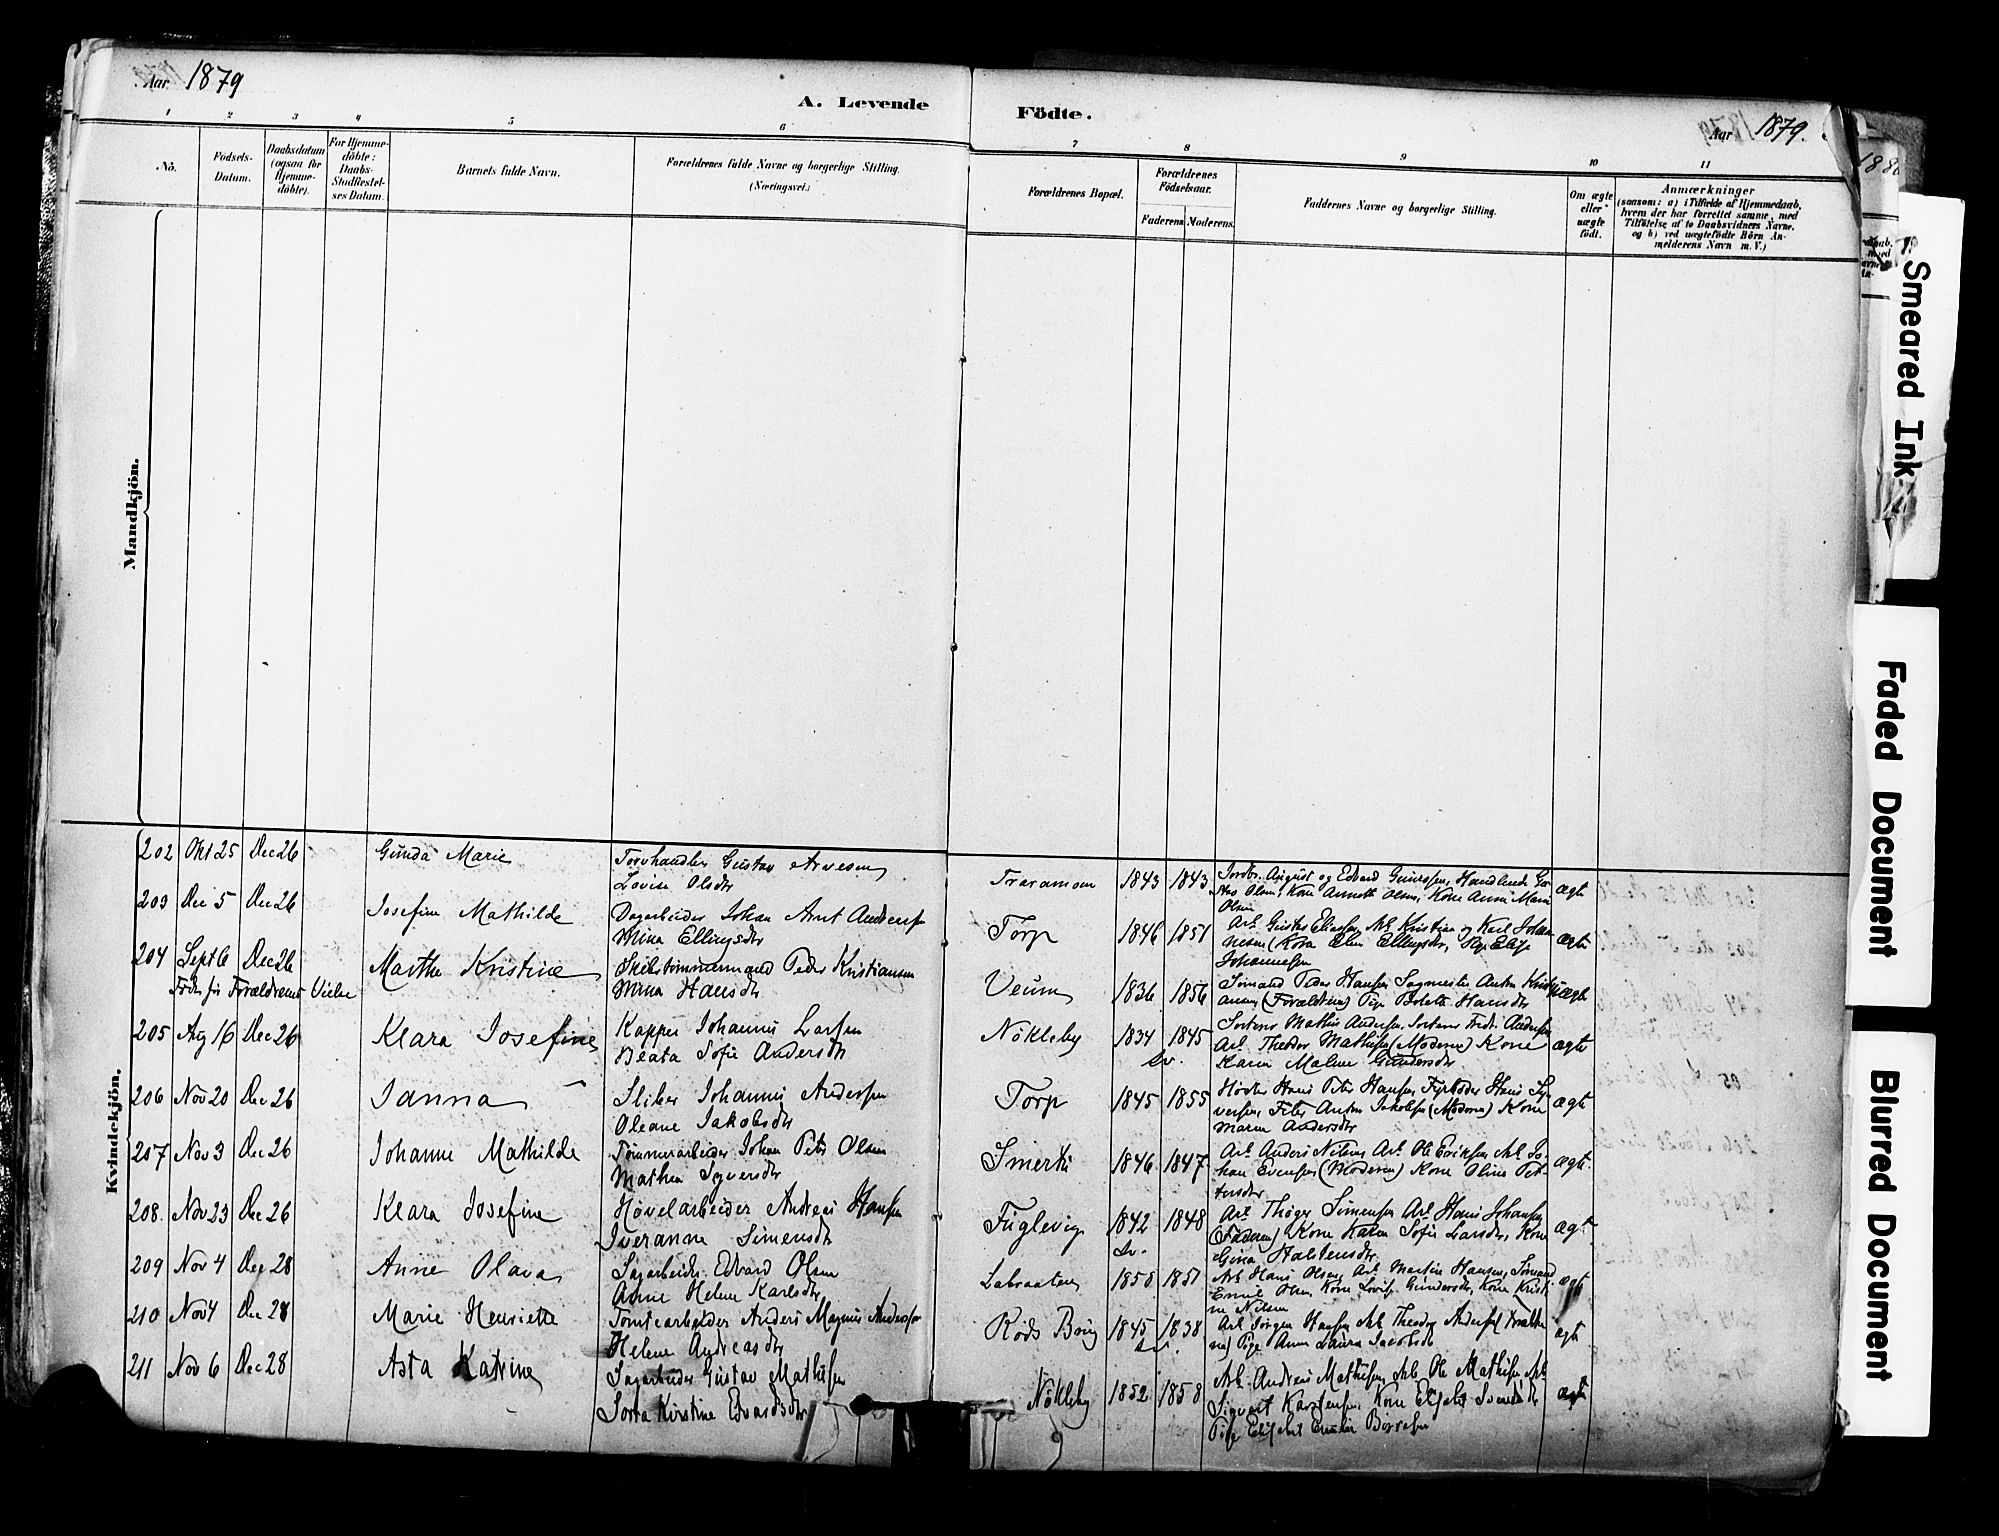 Aar 1879
A. Levende
Födte.
Aar 1879.
1 2 3 4 5 6 7 8 9 10 11
No.
Födsels-
Datum.
Daabsdatum
(ogsaa for
Hjemme-
döbte).
For Hjemme-
döbte:
Daabs-
Stadfæstel-
ses Datum.
Barnets fulde Navn.
Forældrenes fulde Navne og borgerlige Stilling.
(Næringsvei.)
Forældrenes Bopæl.
Forældrenes
Födselsaar.
Faderens Moderens.
Faddernes Navne og borgerlige Stilling.
Om ægte
eller
uægte
födt.
Anmærkninger
(saasom: a) i Tilfælde af Hjemmedaab,
hvem der har forrettet samme, med
Tilföielse af to Daabsvidners Navne,
og b) ved uægtefödte Börn An-
melderens Navn m. V.)
Mandkjön.
Kvindekjön.
202 Okt 25 Dec 26 Gunda Marie
Gustav Arvesen
Lovise Olsdtr
1843 1843
August og Edvard
Olsen, Kone Annette Olsen, Kone Anne Marie
Olsen
ægte
203 Dec 5 Dec 26 Josefine Mathilde
Dagarbeider Johan Arnt Anders
Mina Ellingsdtr
Torp 1846 1851
Arb. Gustav Eliassen, Arb. Kristian og Karl Johan
nesen
Johannessen
ægte
204 Sept 6 Dec 26 Marthe Kristine
Födt før Forældrenes Vielse
Skibstømmermand Peder Kristiansen
Mina Hansdtr
Veum 1836 1856
Sømand Peder Hansen Sagmester Anton Kristi
ansen (Forældrene) Pige Hansdtr
205 Aug 16 Dec 26 Klara Josefine
Kapper Johannes Larsen
Beata Sofie Andersdtr
Nökleby 1834 1845
Sv.
Mathis Andersen, Andersen
Arb. Theodor Mathisen (Moderen) Kone
Karen Malene Gundersdtr
ægte
206 Nov 20 Dec 26 Janna
Sliber Johannes Andersen
Oleane Jakobsdtr
Torp 1845 1855
Hans Peter Hansen, Fyrbøder Hans Sy
versen, Anton Jakobsen (Moderen) Kone
Maren Andersdtr
ægte
207 Nov 3 Dec 26 Johanne Mathilde
Tømmerarbeider Johan Peter Olsen
Mathea Syversdtr
1846 1847
Arb. Anders Nilsen Arb. Ole Eriksen Arb. Jo-
han Evensen (Moderen) Kone Oline Pet-
tersdtr
ægte
208 Nov 23 Dec 26 Klara Josefine
Høvelarbeider Andreas Hansen
Iveranne Simensdtr
Fuglevig 1842 1848
Sv.
Arb. Thøger Simensen Arb. Hans Johansen
(Faderen) Kone Karen Sofie Larsdtr, Kone
Gina Halstensdtr
ægt
209 Nov 4 Dec 28 Anne Olava
Sagarbeider Edvard Olsen
Anne Helene Karlsdtr
Labraaten 1850 1851
Arb. Hans Olsen, Arb. Martin Hansen, Sømand
Emil Olsen, Kone Lovise Gundersdtr, Kone Kristi
ne Nilsen
ægt
210 Nov 4 Dec 28 Marie Henriette
Tomtearbeider Anders Magnus Andersen
Helene Andreasdtr
Röds Brug 1845 1838
Sv.
Arb. Jørgen Hansen Arb. Theodor Andersen (Forældre
ne) Pige Anne Laura Jacobsdtr
ægt
211 Nov 6 Dec 28 Asta Katrine
Sagarbeider Gustav Mathisen
Kirstine Edvardsdtr
Nökleby 1852 1858
Arb. Andreas Mathisen, Arb. Ole Mathisen, Arb.
Sigvart Karstensen, Kone
Pige Elisabet Emilie
ægte
1880
Smeared Ink
Faded Document
Blurred Document